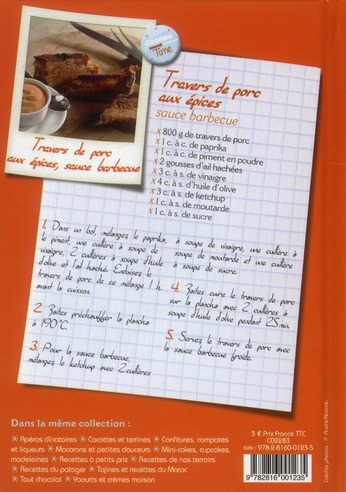 Time
Travers de porc
aux épices, sauce barbecue
Travers de porc
aux épices
sauce barbecue
x 800 g de travers de porc
x 1 c. à c. de paprika
x 1 c. à c. de piment en poudre
x 2 gousses d'ail hachées
x 3 c. à s. de vinaigre
x 4 c. à s. d'huile d'olive
x 3 c. à s. de ketchup
x 1 c. à s. de moutarde
x 1 c. à s. de sucre
1. Dans un bol, mélangez le paprika,
le piment, une cuillère à soupe de
vinaigre, 2 cuillères à soupe d'huile
d'olive et l'ail haché. Enduisez le
travers de porc de ce mélange 1 h
avant la cuisson.
2. Faites préchauffer la plancha
à 190°C.
3. Pour la sauce barbecue,
mélangez le ketchup avec 2 cuillères
à soupe de vinaigre, une cuillère à
soupe de moutarde et une cuillère
à soupe de sucre.
4. Faites cuire le travers de porc
sur la plancha avec 2 cuillères à
soupe d'huile d'olive pendant 25 min.
5. Servez le travers de porc avec
la sauce barbecue froide.
Dans la même collection :
* Apéros dînatoires * Cocottes et terrines * Confitures, compotes
et liqueurs * Macarons et petites douceurs * Mini-cakes, cupcakes,
madeleines * Recettes à petits prix * Recettes de nos terroirs
* Recettes du potager * Tajines et recettes du Maroc
* Tout chocolat * Yaourts et crèmes maison
3 € Prix France TTC
C02283
ISBN : 978-2-8160-0123-5
9 782816 001235
Crédits photos : P. André/Nature.